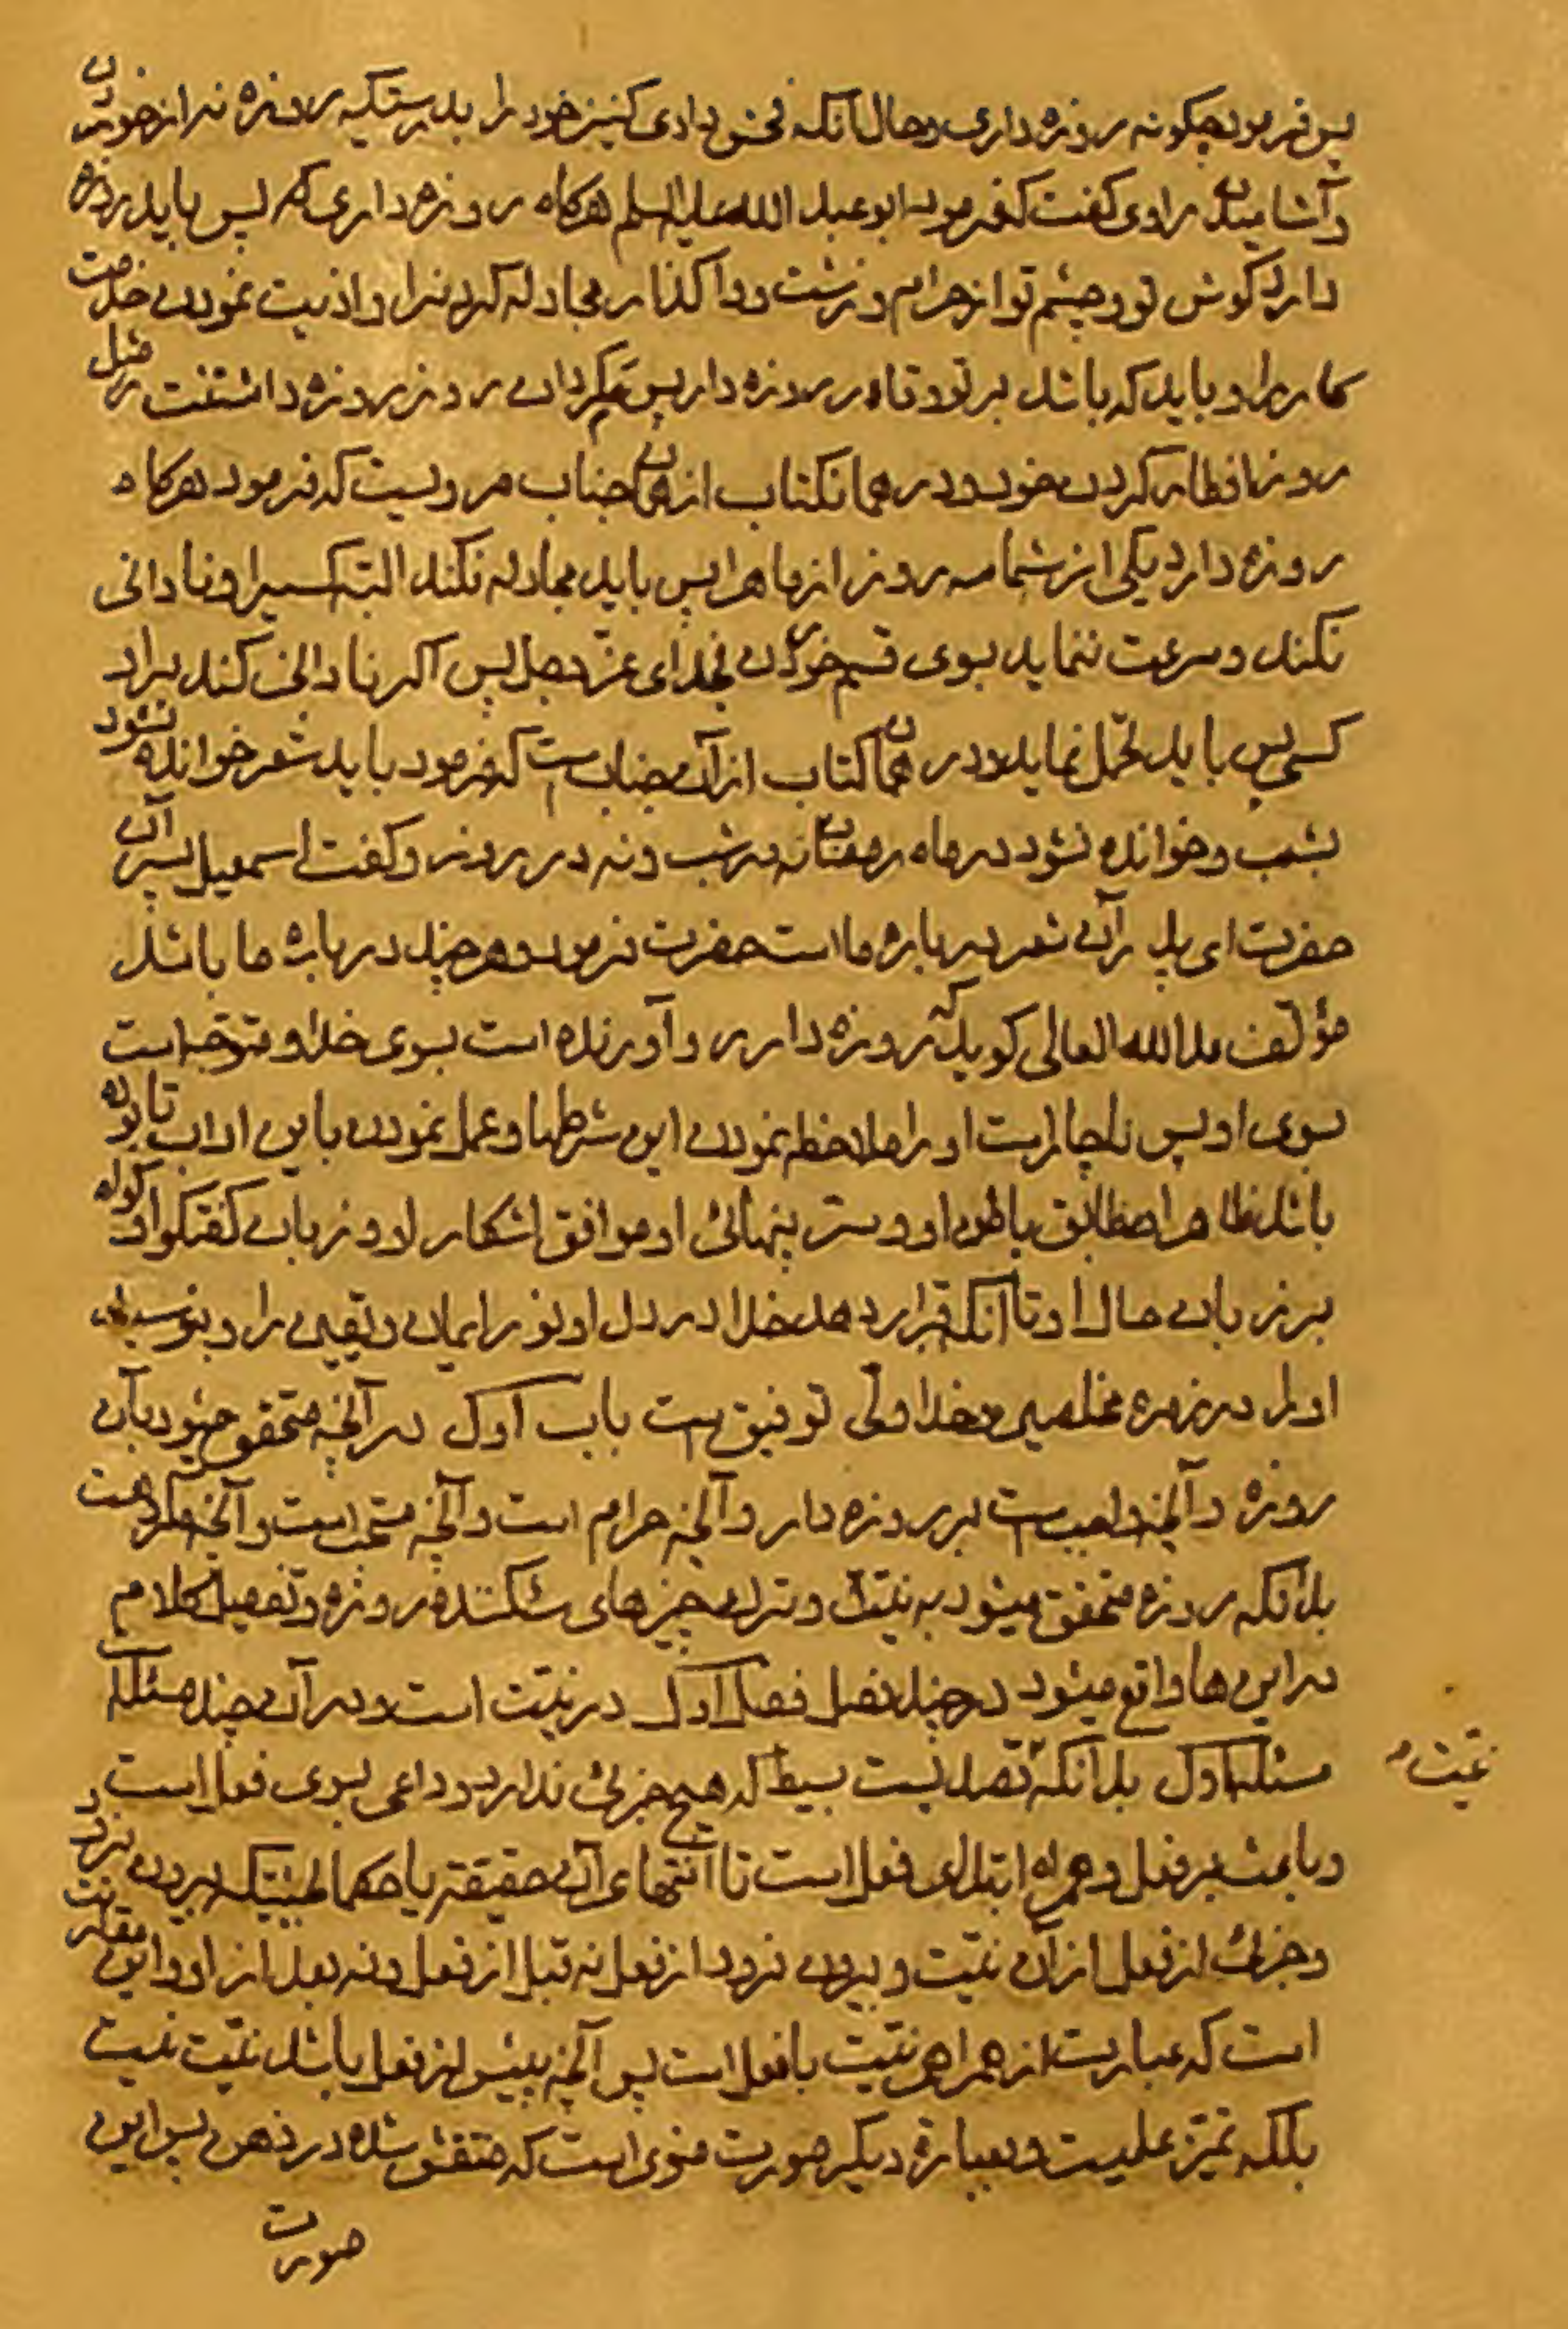 پس فرمود چکونه روزه داری و حال آنکه فحش دادی کنیز خود را بدرستیکه روزه نه از خوردن
و آشامیدن راوی کفت که فرمود ابو عبد الله علیه السلم هرکاه روزه داری که پس باید روزه
دارد کوش تو و چشم تو از حرام و زشت و واکذار مجادله کردنرا و اذیت نمودن خدمت
کار را و باید که باشد بر تو وقاه روزه دار پس مکردان روز روزه داشتنت را مثل
روز افطار کردن خود و در همان کتاب از همان جناب مرویست که فرمود هرکاه
روزه دارد یکی از شما سه روز از ماه را پس باید مجادله نکند البته کسیرا و نادانی
نکند و سرعت ننماید بسوی قسم خوردن بخدای عز و جل پس اکر نادانی کند براو
کسی پس باید تحمل نماید و در همان کتاب از آن جناب است که فرمود باید شعر خوانده نشود
بشب و خوانده نشود در ماه رمضان نه در شب و نه در روز و کفت اسمعیل پسر آن
حضرت ای پدر آن شعر در باره ما است حضرت فرمود و هر چند در باره ما باشد
مؤلف مد الله العالی کوید که روزه دار رو آورنده است بسوی خدا و متوجه است
بسوی او پس ناچار است او را ملاحظه نمودن این شرطها و عمل نمودن باین اداب تا بوده
باشد ظاهر او مطابق باطن او و ستر پنهانئ او موافق اشکار او و زبان کفتکو او کواه
بر زبان حال او تا آنکه قرار دهد خدا در دل او نور ایمان و یقین را و بنویسد
او را در زمره مخلصین و خدا ولی توفیق است باب اول در آنچه متحقق میشود بآن
روزه و آنچه واجب است بر روزه دار و آنچه حرام است و آنچه مستحب است و آنچه مکروهست
بدآنکه روزه متحقق میشود به نیت و ترک چیزهای شکننده روزه و تفصیل کلام
در این ها واقع میشود در چند فصل فصل اول در نیت است و در آن چند مسئله
مسئله اول بدانکه قصدیست بسیط که هیچ جزئی ندارد و داعی بسوی فعل است و
نیت
و باعث بر فعل و همراه ابتدای فعل است تا آنتهای آن حقیقة یا حکما بحیثیتیکه بیرون نرود
و جزئ از فعل از آن نیت و بیرون نرود از فعل نه قبل از فعل و نه بعد از او و این مقارنت
است که عبارت از همراهی نیت با فعل است پس آنچه پیش از فعل باشد نیت نیست
بلکه تمیز علمیست و بعبارة دیکر صورت منوی است که منتقش شده در ذهن پس این
صورت